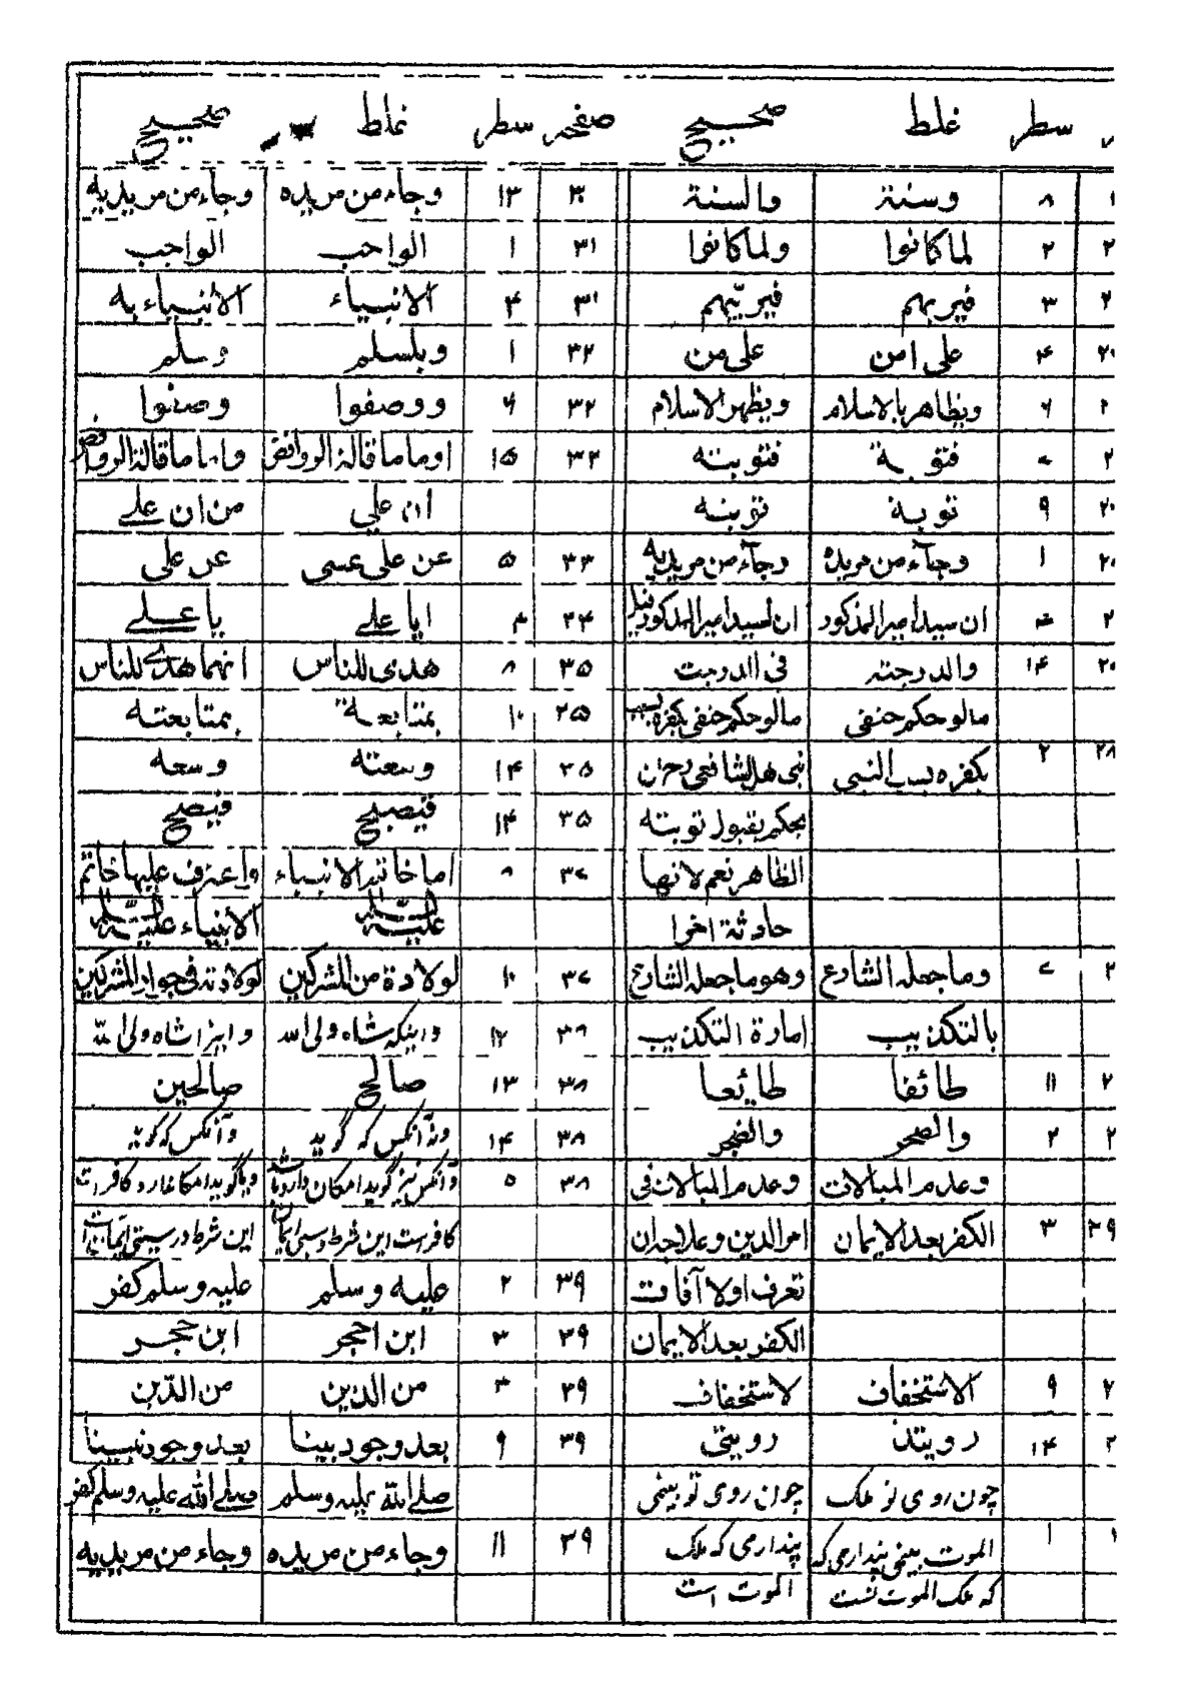 سطر غلط صحیح صفحہ سطر غلط صحیح
۸ وسنة والسنة ۳۰ ۱۳ وجاء من مریده وجاء من مریدیه
۲ لماکانوا ولماکانوا ۳۱ ۱ الواحب الواجب
۳ فیربهم فیربّیهم ۳۱ ۴ الانبیاء الانبیاء به
۴ علی امن علی من ۳۲ ۱ وبلسلم وسلم
۶ ویظاهر بالاسلام ویظهر الاسلام ۳۲ ۶ ووصفوا وصنفوا
۷ فتوبة فتوبته ۳۲ ۱۵ اوماما قالہ الروافض واما ما قالہ الروافض
۹ توبة توبته ان علی من ان علی
۱ وجآء من مریده وجآء من مریدیه ۳۳ ۵ عن علی عسی عن علی
ان سید امیر المذکور ان السید امیر المذکور ۳۴ ۴ ایا علی یا علی
۱۴ والدرجتہ فی الدرجت ۳۵ ۸ هدی للناس انهما هدی للناس
مالو حکم حنفی مالو حکم حنفی بکفره بسب ۳۵ ۱۰ بمتابعة بمتابعته
۲۸ ۲ بکفره بسب النبی نبی هل للشافعی ان ۳۵ ۱۴ وسعته وسعه
یحکم بقبول توبته ۳۵ ۱۴ فیصبلح فیصح
الظاهر نعم لانها ۳۷ ۸ اما خاتم الانبیاء واعترف علیها خاتم
حادثة اخرا علیہ السلام الانبیاء علیہ السلام
۷ وما جعلہ الشارع وهو ما جعلہ الشارع ۳۷ ۱۰ لولادة من المشرکین لولادتہ فی جواد المشرکین
بالتکذیب امارة التکذیب ۳۸ ۱۲ واینکہ شاه ولی الله وایرا شاه ولی الله
۱۱ طائفا طائعا ۳۸ ۱۳ صالح صالحین
۲ والصحر والضجر ۳۸ ۱۴ ونہ آنکس کہ گوید وآنکس کہ گوید
وعدم المبالات وعدم المبالات فی ۳۸ ۵ وآنکس نیز گوید امکان دارد
۲۹ ۳ الکفر بعد الایمان امر الدین کافر است این شرط این شرط درستی
تعرف اولا آفات ۳۹ ۲ علیه وسلم علیہ وسلم کفر
الکفر بعد الایمان ۳۹ ۳ ابن احجر ابن حجر
۹ الاستخفاف لاستخفاف ۳۹ ۳ من الدین من الدّین
۱۴ رویتن رویتی ۳۹ ۹ بعد وجود بینا بعد وجود نبینا
چون روی تو ملک چون روی تو بینی صلی الله علیہ وسلم صلی الله علیہ وسلم کفر
۱ الموت بینی پنداری کہ پنداری کہ ملک ۳۹ ۱۱ وجاء من مریده وجاء من مریدیه
کہ ملک الموت نشت الموت است